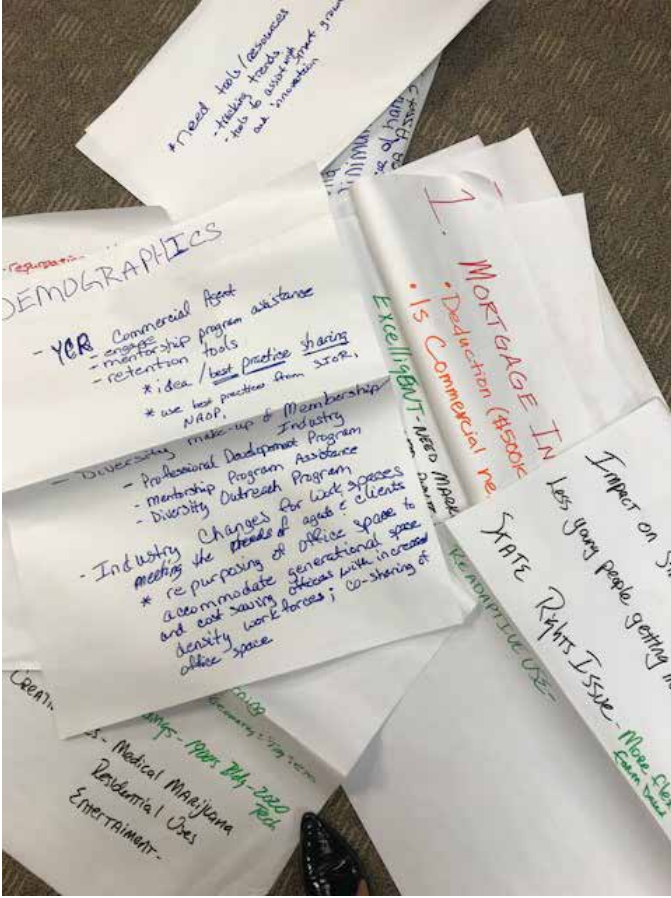 *need tools/resources
- tracking trends
- tools to assist with smart growth
and innovation
DEMOGRAPHICS
- YCR Commercial Agent
- engage
- mentorship program assistance
- retention tools
* idea / best practice sharing
* use best practices from SIOR,
NAOP,
- Diversity make-up of Membership
Industry
- Professional Development Program
- mentorship Program Assistance
- Diversity Outreach Program
- Industry Changes for work spaces
meeting the needs of agents & clients
* repurposing of office space to
accommodate generational space
and cost saving offices with increased
density work forces; co-sharing of
office space
1. MORTGAGE IN
• Deduction ($500K
• Is Commercial ne
ExcelligENT - NEED MARK
Impact on
Less young people getting
STATE Rights Issue - More flex
Form based
RE ADAPTIVE USE -
- 1980s Bldg - 2020
Tech
- Medical Marijuana
Residential Uses
Entertaiment -